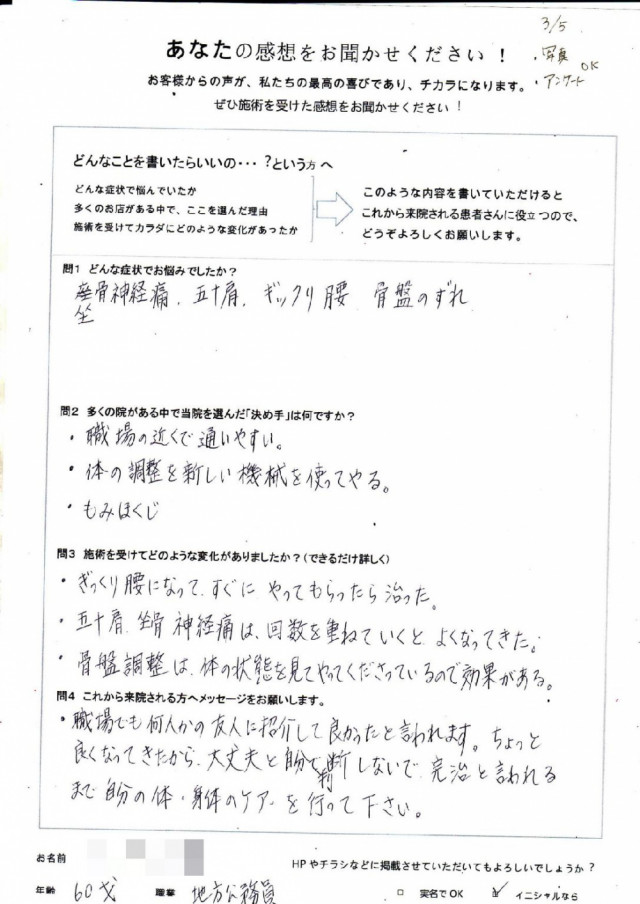 3/5
・写真
OK
・アンケート
あなたの感想をお聞かせください！
お客様からの声が、私たちの最高の喜びであり、チカラになります。
ぜひ施術を受けた感想をお聞かせください！
どんなことを書いたらいいの・・・？という方へ
どんな症状で悩んでいたか
多くのお店がある中で、ここを選んだ理由
施術を受けてカラダにどのような変化があったか
このような内容を書いていただけると
これから来院される患者さんに役立つので、
どうぞよろしくお願いします。
問1 どんな症状でお悩みでしたか？
骨神経痛、五十肩、ギックリ腰 骨盤のずれ
坐
問2 多くの院がある中で当院を選んだ「決め手」は何ですか？
・職場の近くで通いやすい。
・体の調整を新しい機械を使ってやる。
・もみほくじ
問3 施術を受けてどのような変化がありましたか？（できるだけ詳しく）
・ぎっくり腰になって、すぐに やってもらったら治った。
・五十肩、坐骨神経痛は、回数を重ねていくと よくなってきた。
・骨盤調整は、体の状態を見てやってくださっているので効果がある。
問4 これから来院される方へメッセージをお願いします。
・職場でも何人かの友人に紹介して良かったと言われます。ちょっと
良くなってきたから、大丈夫と自分で判断しないで、完治と言われる
まで自分の体・身体のケアーを行って下さい。
お名前
HPやチラシなどに掲載させていただいてもよろしいでしょうか？
年齢 60才 職業 地方公務員 □ 実名でOK ☑ イニシャルなら